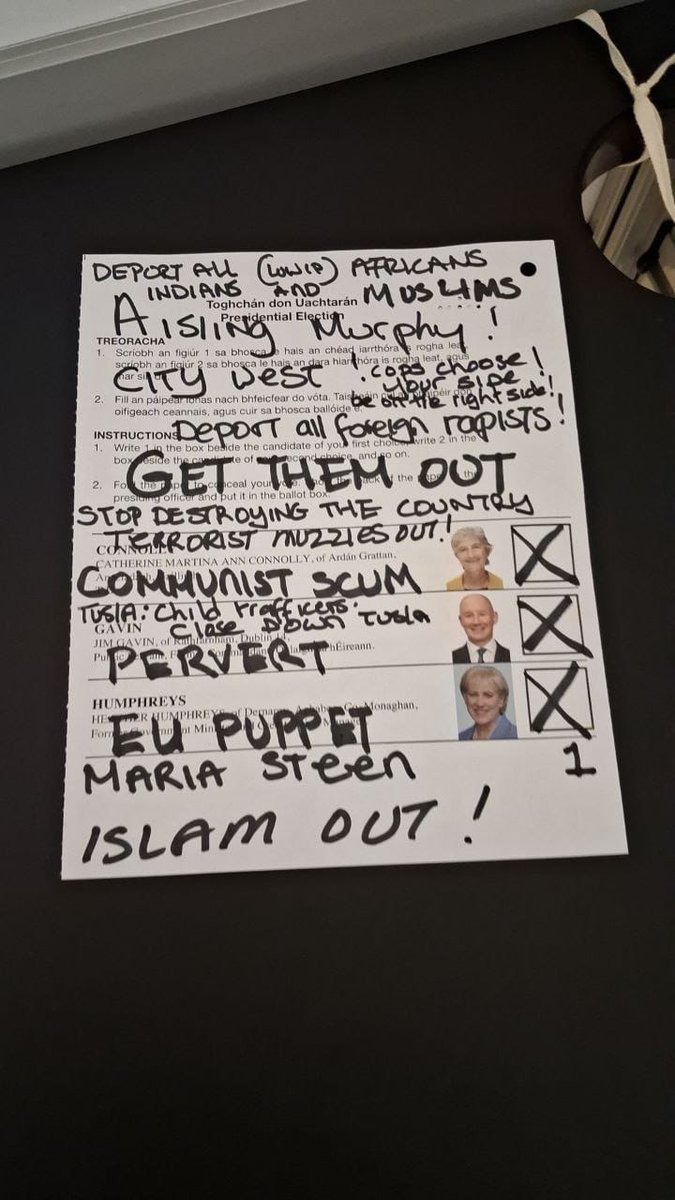 DEPORT ALL (LOW IP) AFRICANS
INDIANS AND MUSLIMS
Toghchán don Uachtarán
Presidential Election
AISLING MURPHY!
TREORACHA
1. Scríobh an figiúr 1 sa bhosca le hais an chéad iarrthóra is rogha leat,
scríobh an figiúr 2 sa bhosca le hais an dara hiarrthóra is rogha leat, agus
mar sin
CITY WEST ! COPS CHOOSE!
YOUR SIDE
be on the right side!!
2. Fill an páipéar ionas nach bhfeicfear do vóta.
oifigeach ceannais, agus cuir sa bhosca ballóide é.
DEPORT all foreign rapists!
INSTRUCTIONS
1. Write 1 in the box beside the candidate of your first choice, write 2 in the
box beside the candidate of your second choice, and so on.
GET THEM OUT
2. Fold the paper to conceal your vote. the
presiding officer and put it in the ballot box.
STOP DESTROYING THE COUNTRY
TERRORIST MUZZIES OUT!
CONNOLLY
CATHERINE MARTINA ANN CONNOLLY, of Ardán Grattan,
COMMUNIST SCUM
X
TUSLA: Child trafficers.
Close Down TUSLA
GAVIN
JIM GAVIN, of Rathfarnham, Dublin
hÉireann.
PERVERT
X
HUMPHREYS
HEATHER HUMPHREYS, of Co. Monaghan,
Former Government Minister
EU PUPPET
X
MARIA STEEN 1
ISLAM OUT!